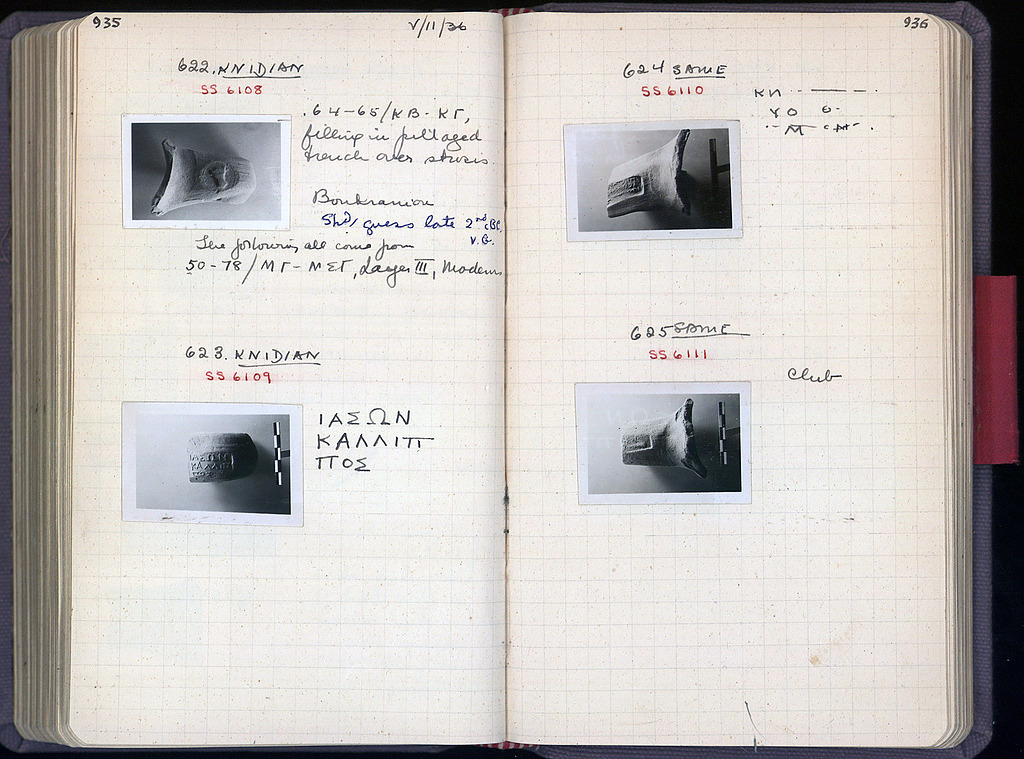 935
V/11/36
622. KNIDIAN
SS 6108
.64-65/ΚΒ-ΚΓ,
filling in pillaged
trench over
Boukranion
Shd, guess late 2nd c BC.
V.G.
The following all come from
50-78/ΜΓ-ΜΣΓ, Layer III, Modern
623. KNIDIAN
SS 6109
ΙΑΣΩΝ
ΚΑΛΛΙΠ
ΠΟΣ
936
624 SAME
SS 6110
ΚΝ
ΥΟ Ο
Μ
625 SAME
SS 6111
Club